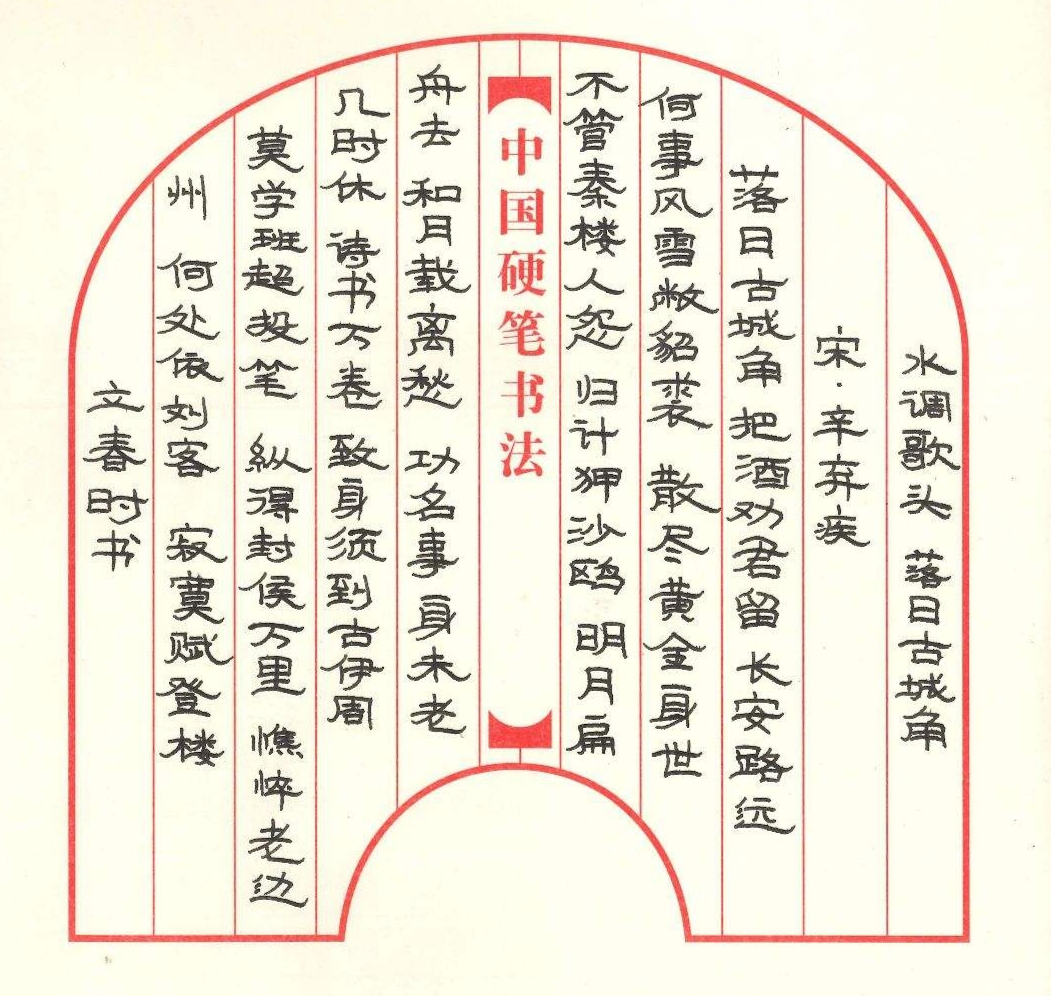 水调歌头 落日古城角
宋·辛弃疾
落日古城角 把酒劝君留 长安路远
何事风雪敝貂裘 散尽黄金身世
不管秦楼人怨 归计狎沙鸥 明月扁
中国硬笔书法
舟去 和月载离愁 功名事 身未老
几时休 诗书万卷 致身须到古伊周
莫学班超投笔 纵得封侯万里 憔悴老边
州 何处依刘客 寂寞赋登楼
立春时书